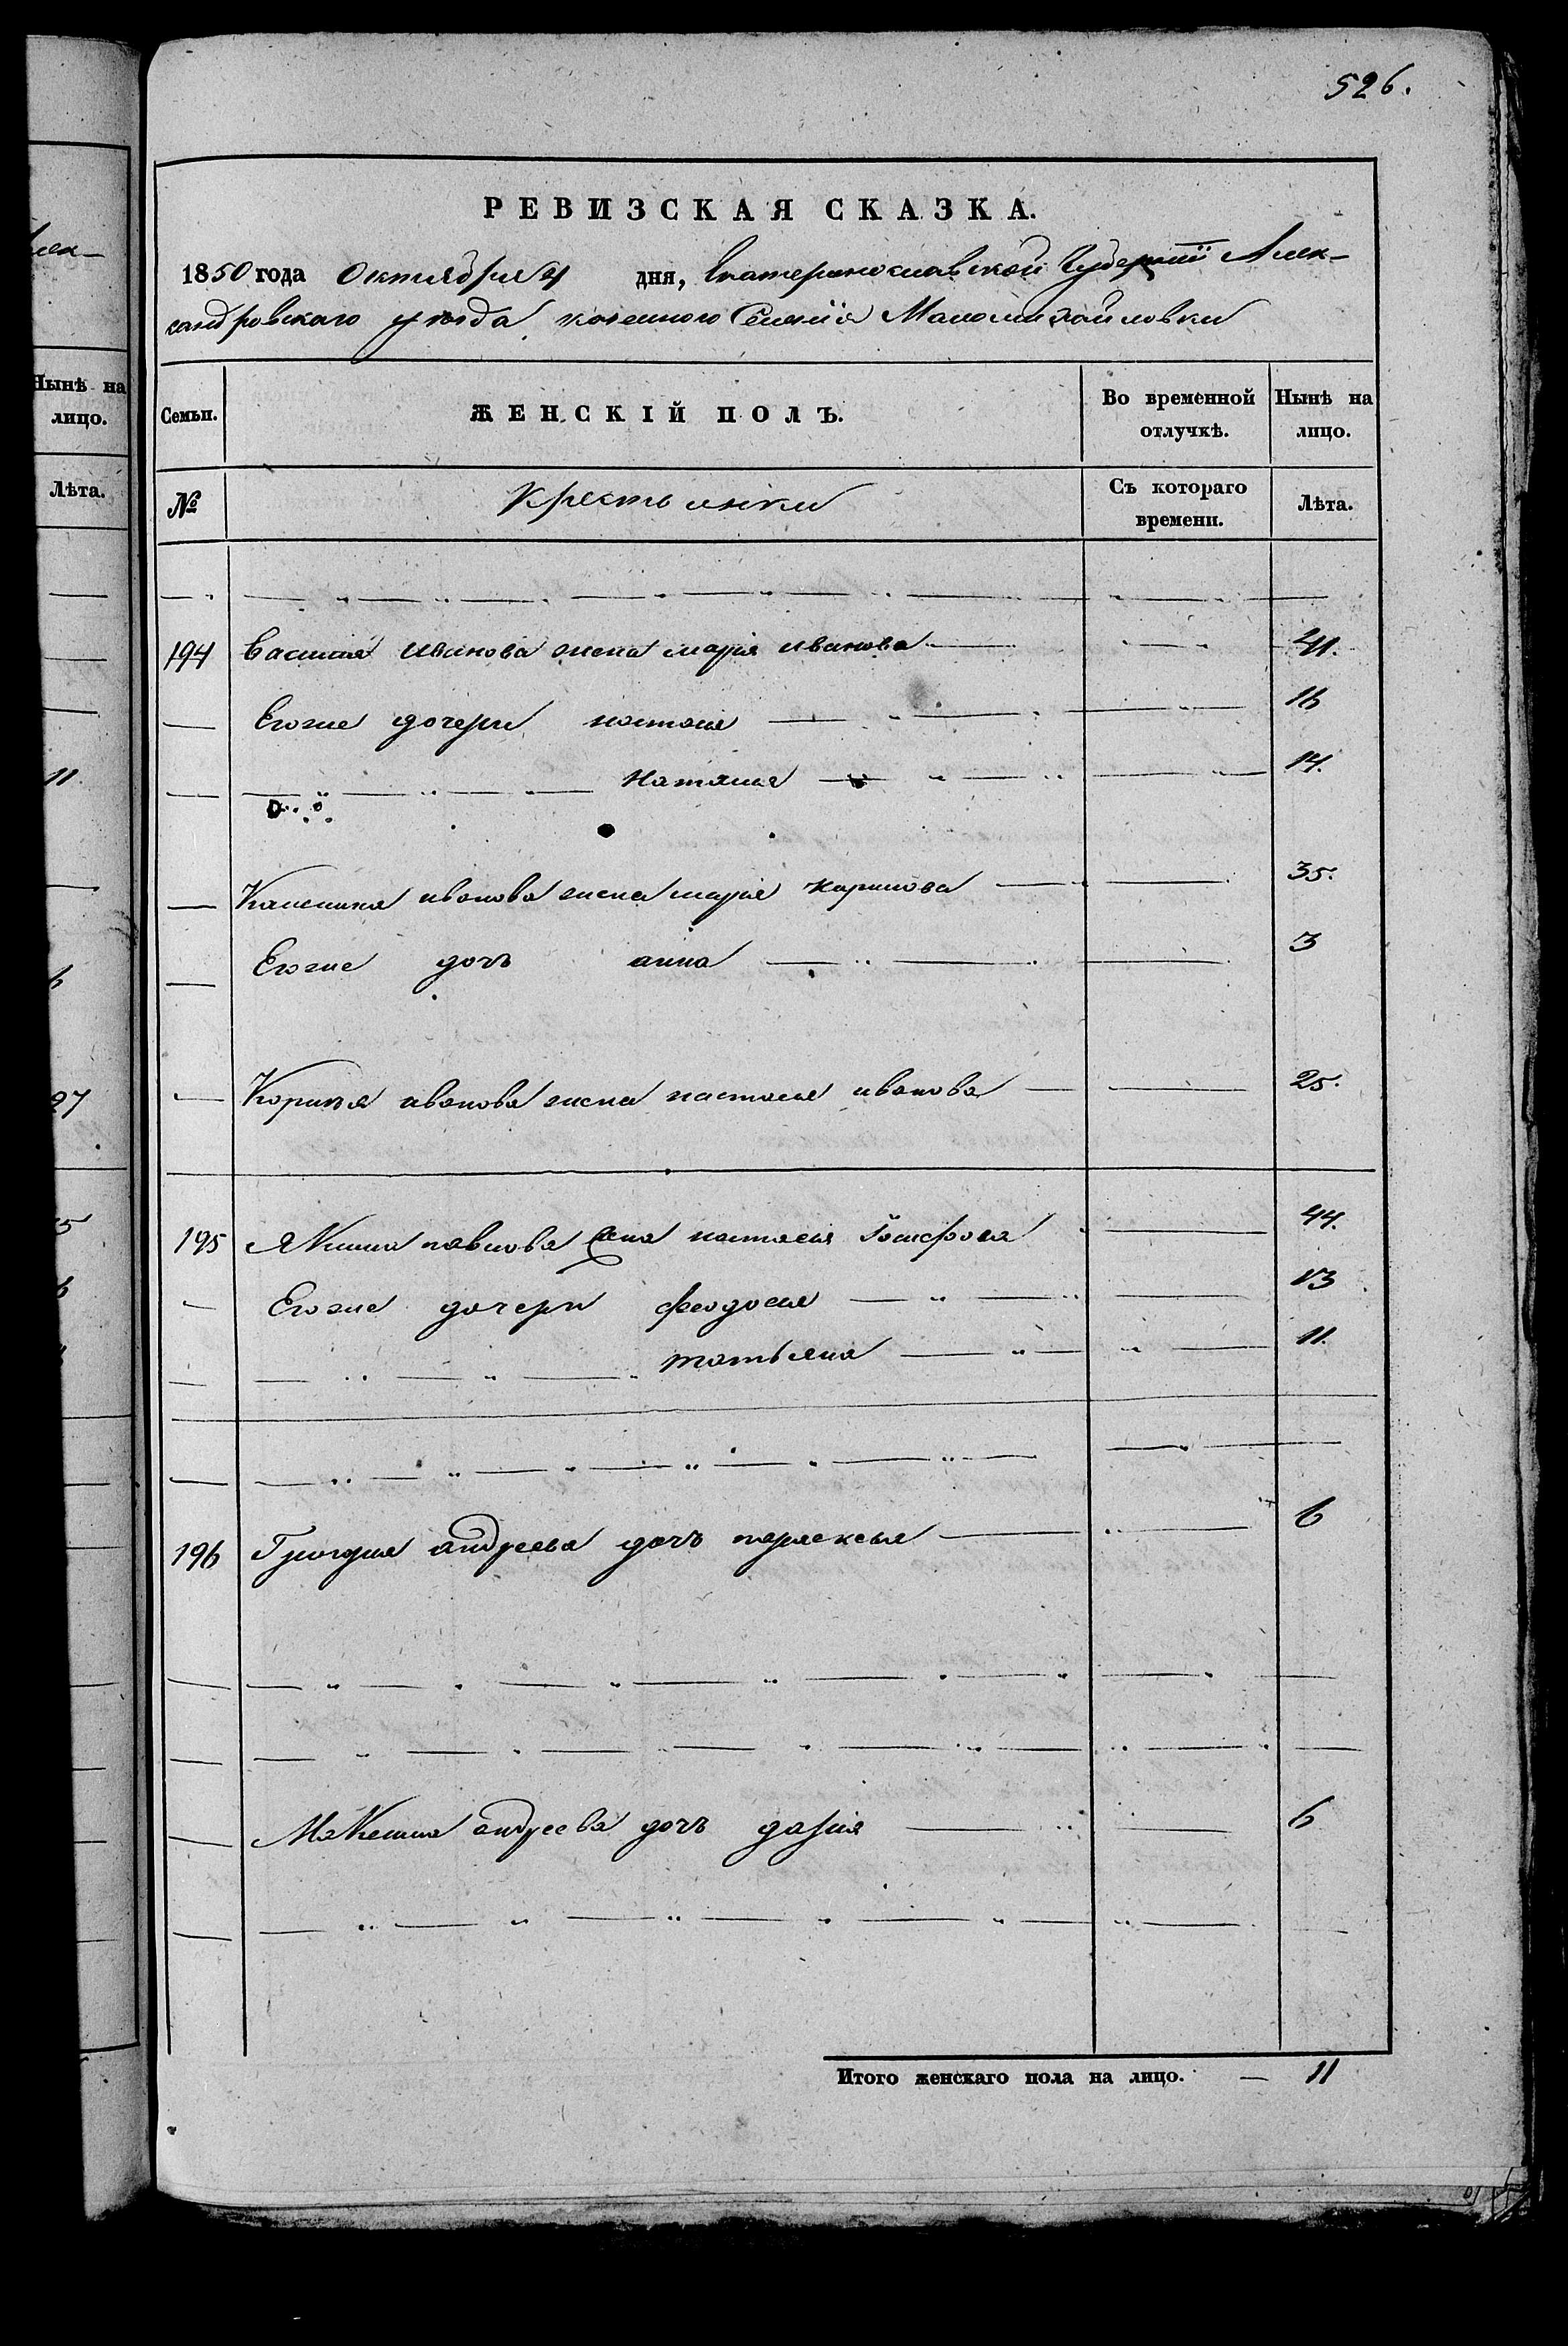 526.
РЕВИЗСКАЯ СКАЗКА.
1850 года Октября 4 дня, Екатеринославской Губернии Алек-
сандровского уезда казенного Селения Маломихайловки
Семьи. ЖЕНСКІЙ ПОЛЪ. Во временной отлучкѣ. Нынѣ на лицо.
№ Крестьянки Съ котораго времени. Лѣта.
194 Василия иванова жена марія иванова 41.
Егоже дочери настасия 16
Наталия 14.
иванова жена марія карпова 35.
Егоже дочь анна 3
иванова жена настасия иванова 25.
195 Якима павлова жена настасия 44.
Егоже дочери феодосия 13
татьяна 11.
196 Григория андреева дочь параскевия 6
Максима андреева дочь дария 6
Итого женскаго пола на лицо. — 11
Нынѣ на
лицо.
Лѣта.
11.
27